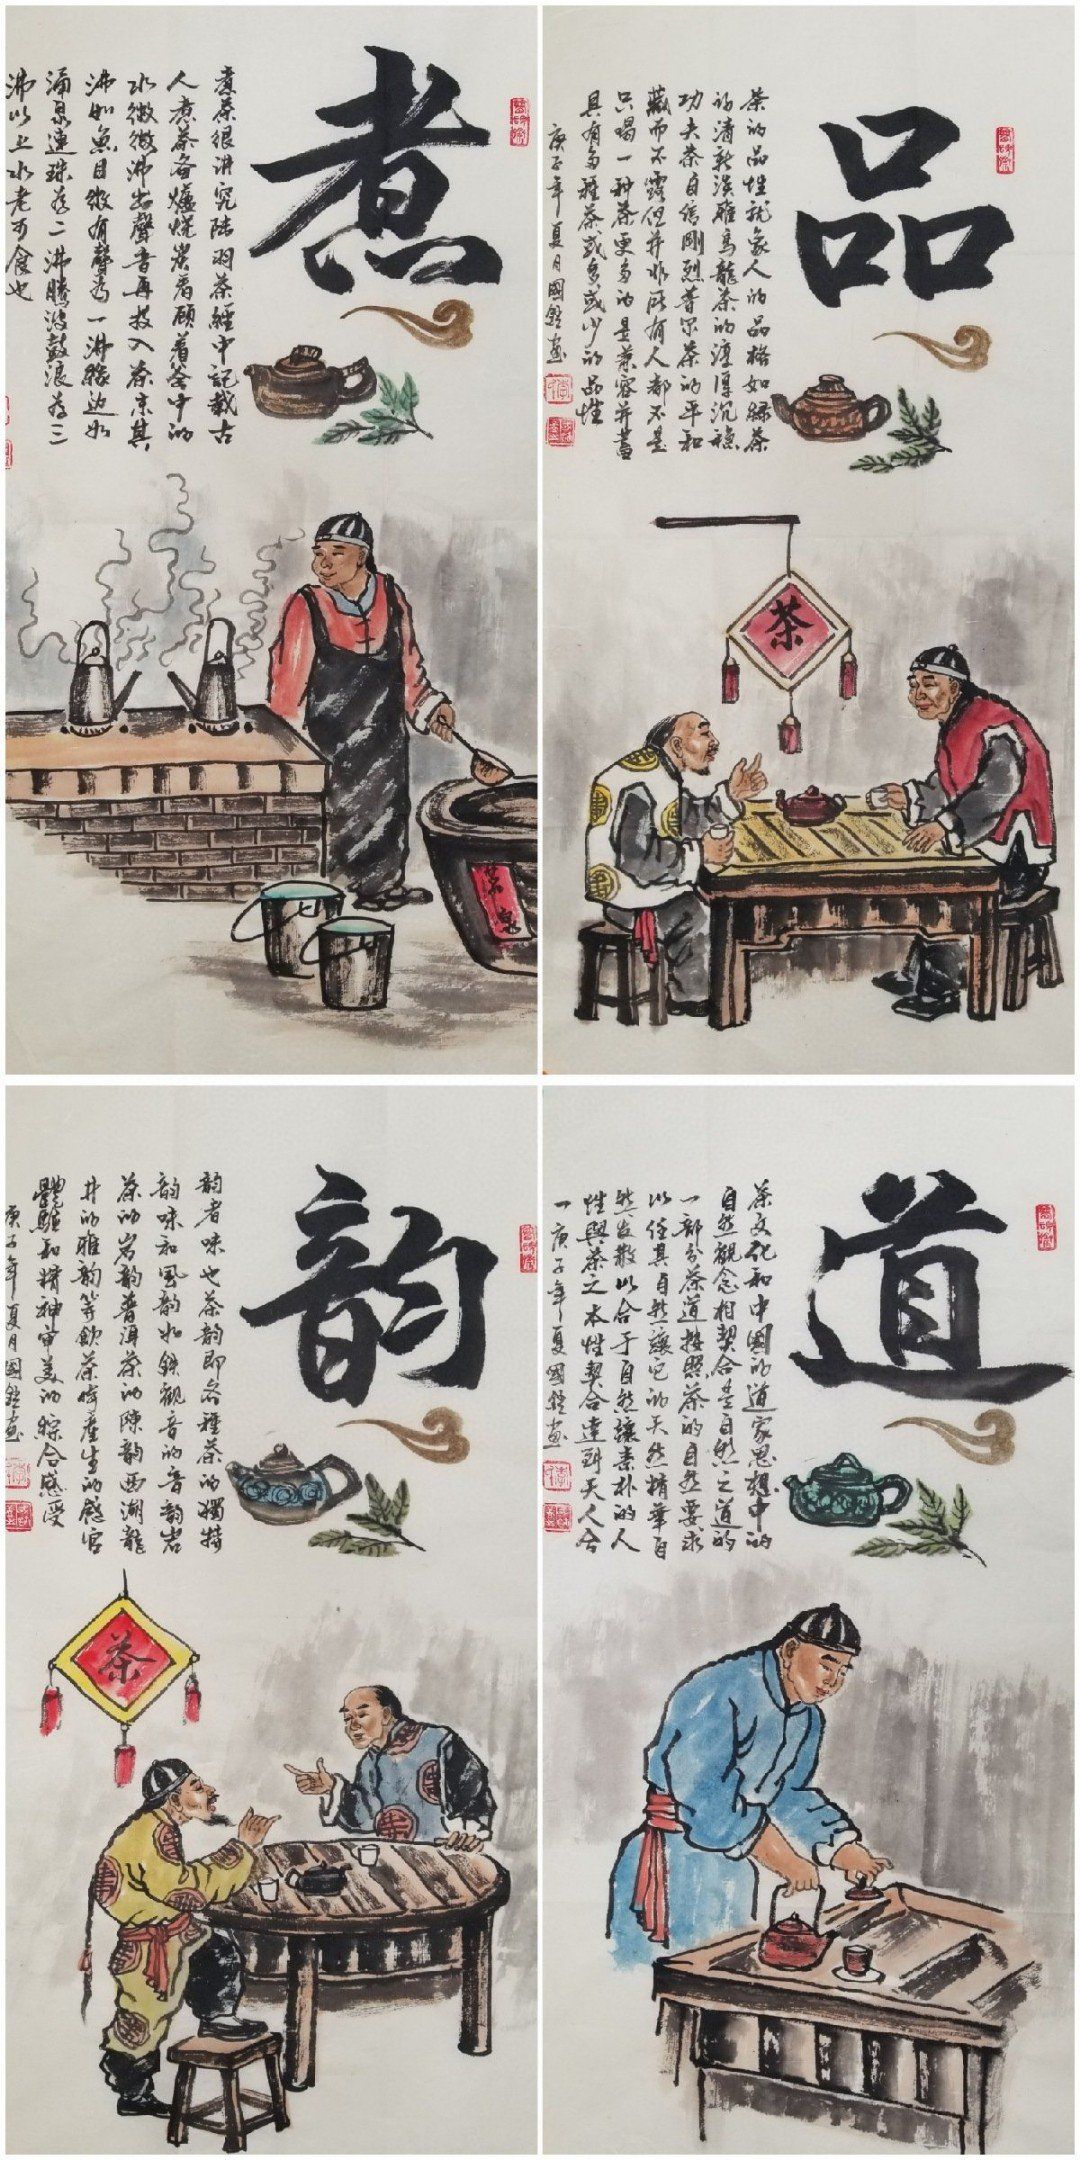 煮
煮茶很讲究陆羽茶經中記載古
人煮茶备爐烧炭看顾着釜中的
水微微沸出聲音再投入茶末其
沸如魚目微有聲为一沸缘边如
涌泉連珠为二沸腾波鼓浪为三
沸以上水老不可食也
茶泉
品
茶的品性就象人的品格如绿茶
的清新淡雅烏龍茶的淳厚沉稳
功夫茶自信剛烈普尔茶的平和
藏而不露但并非所有人都不是
只喝一种茶更多的是兼容并蓄
具有多種茶或多或少的品性
庚子年夏月國画
茶
韵
韵者味也茶韵即各種茶的獨特
韵味和風韵如鉄觀音的音韵岩
茶的岩韵普洱茶的陳韵西湖龍
井的雅韵等飲茶時產生的感官
體驗和精神审美的綜合感受
庚子年夏月國画
茶
道
茶文化和中國的道家思想中的
自然觀念相契合是自然之道的
一部分茶道按照茶的自然要求
以任其自然讓它的天然精華自
然发散以合于自然讓素朴的人
性與茶之本性契合達到天人合
一庚子年夏國画